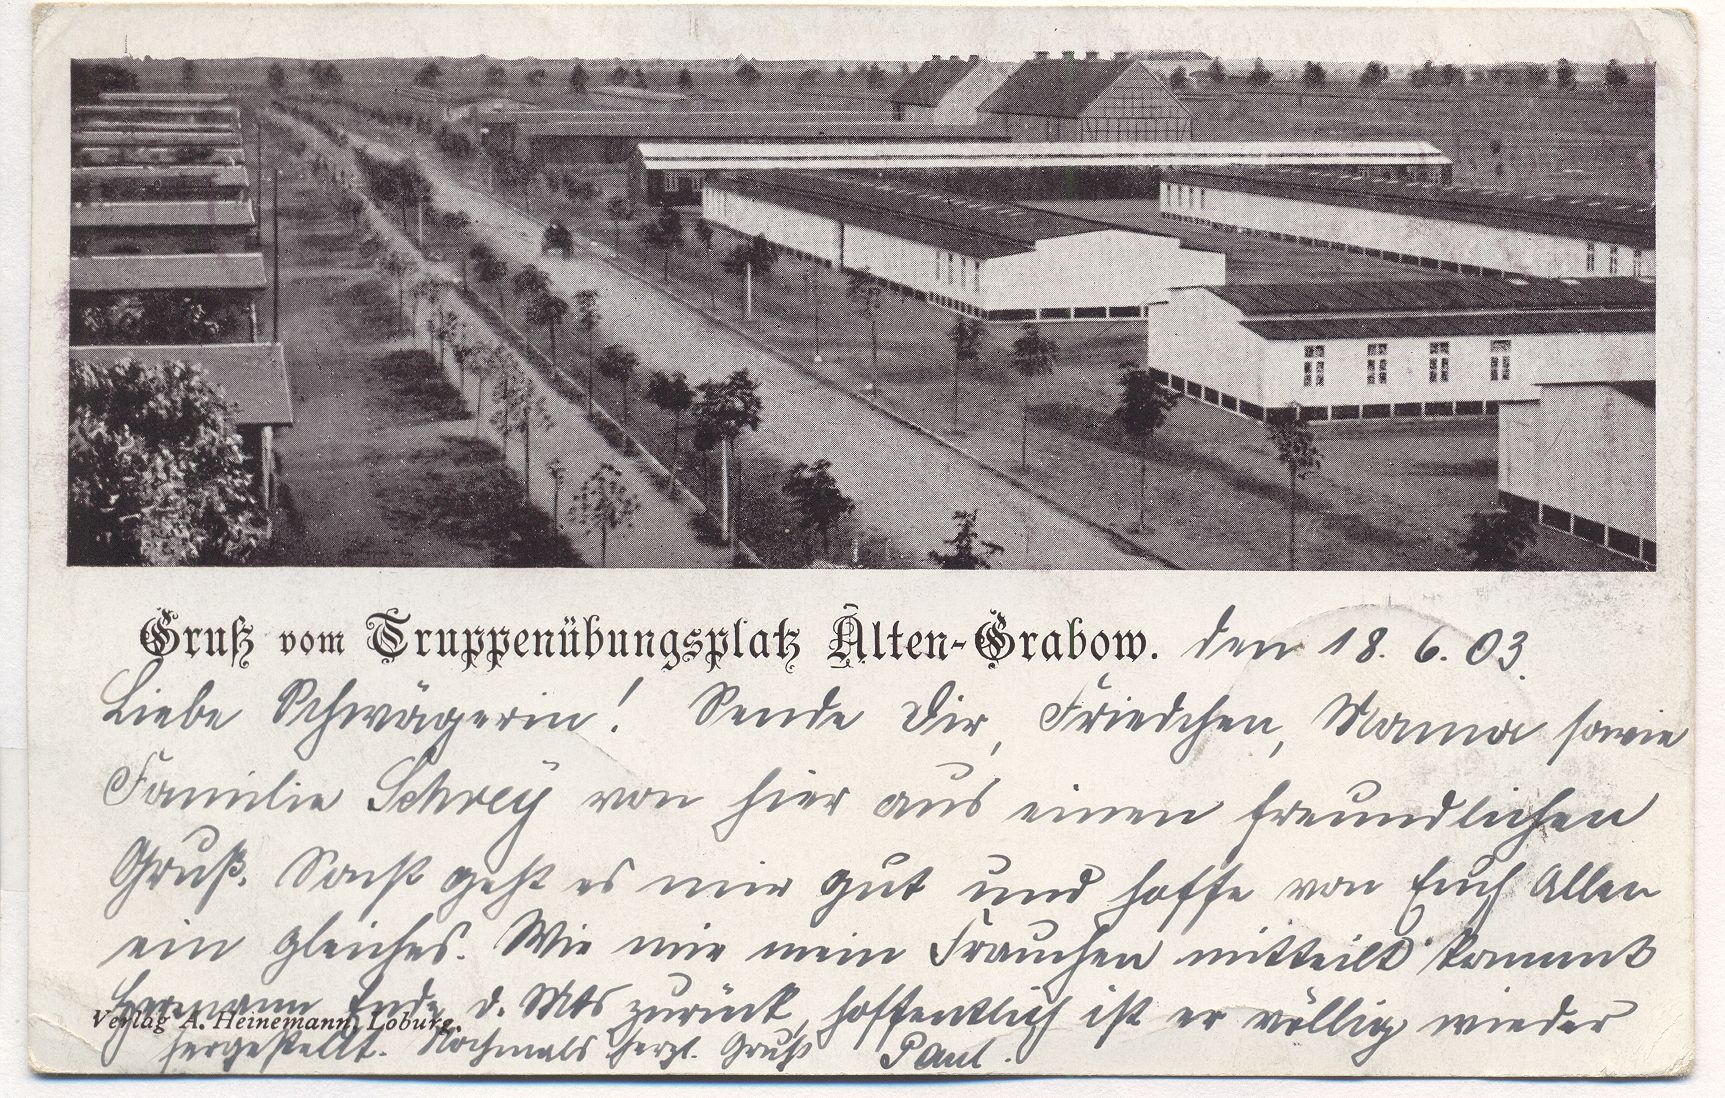 Gruß vom Truppenübungsplatz Alten-Grabow. den 18. 6. 03.
Liebe Schwägerin! Sende Dir, Friedchen, Mama sowie
Familie Schrey von hier aus einen freundlichen
Gruß. Sonst geht es mir gut und hoffe von Euch Allen
ein gleiches. Wie mir mein Frauchen mitteilt kommt
Hermann Ende d. Mts zurück, hoffentlich ist er völlig wieder
Verlag A. Heinemann, Loburg.
hergestellt. Nochmals herzl. Gruß Paul.